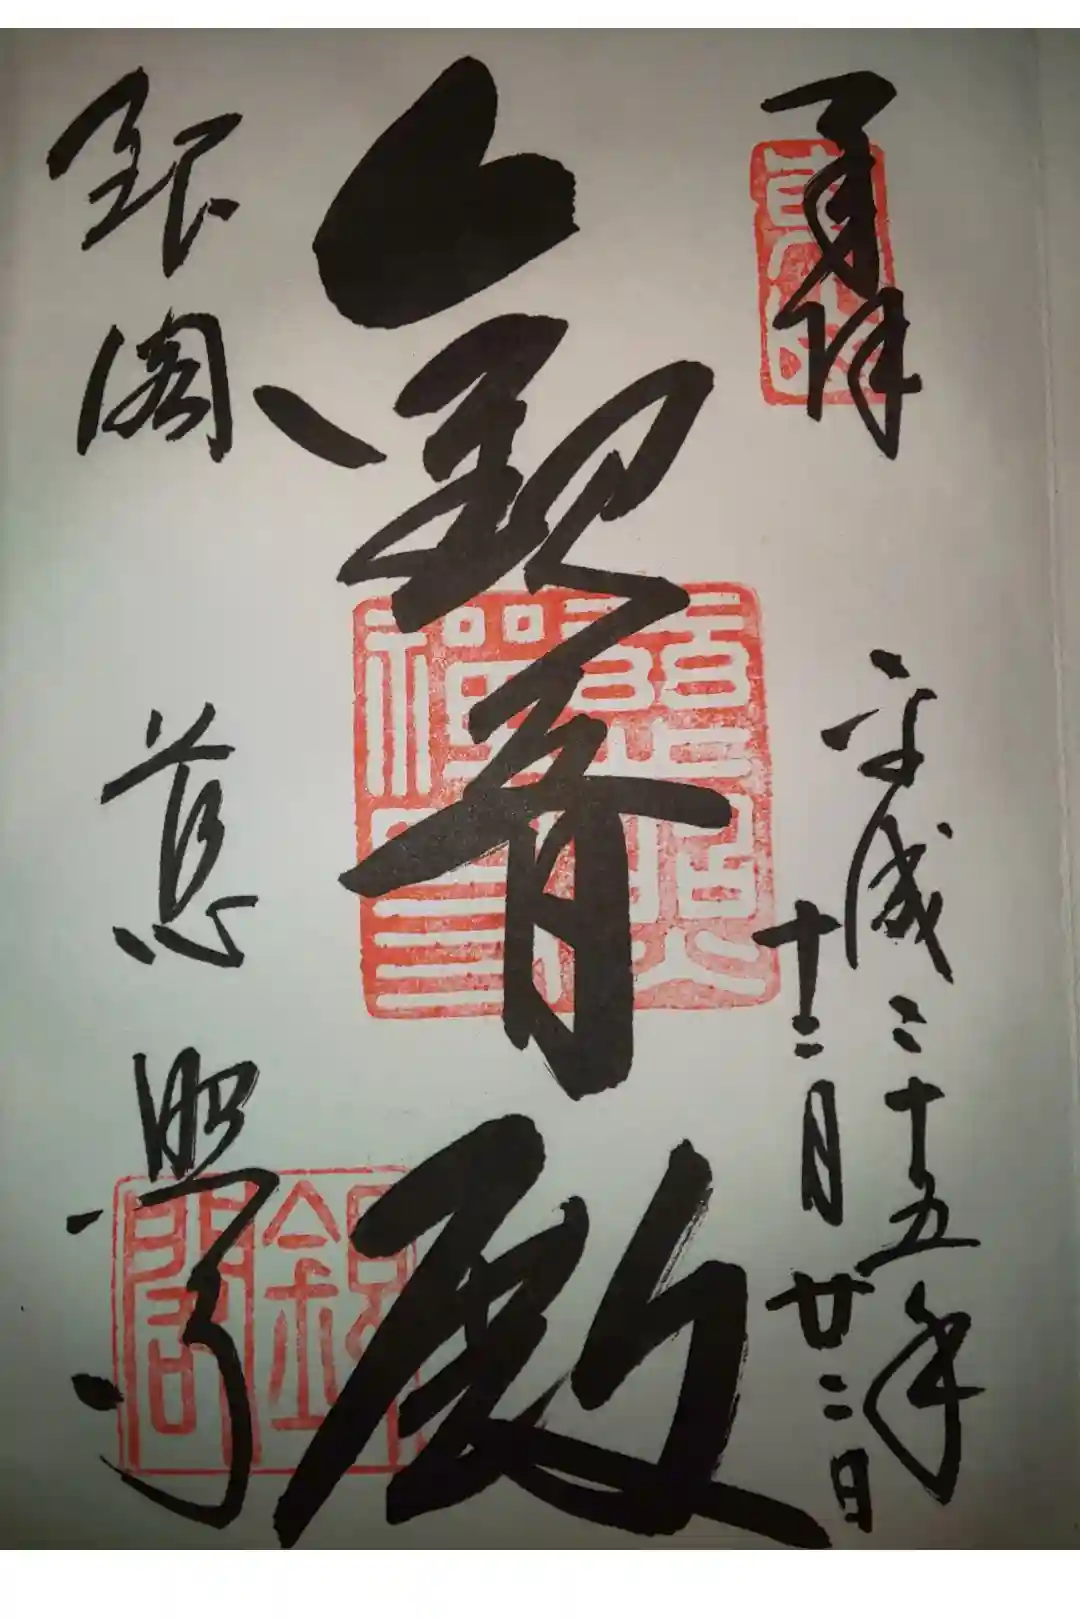 奉拝
平成二十五年
十二月廿二日
観音殿
慈照
禅寺
銀閣
慈照寺
銀閣